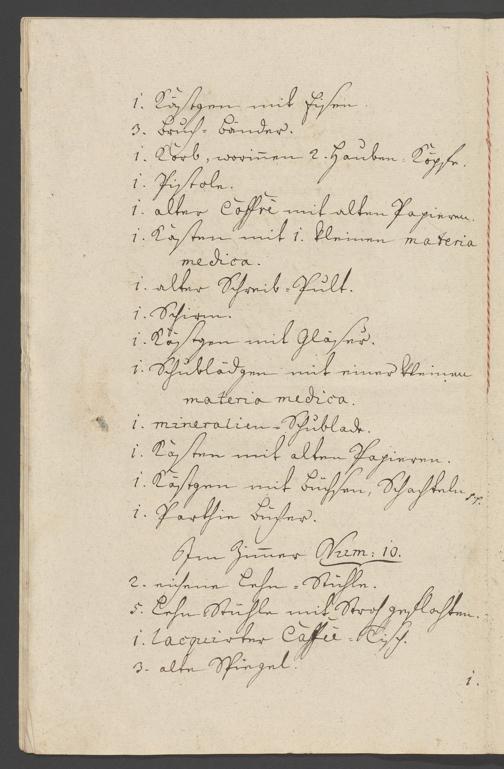 1. Kästgen mit Eisen.
3. Bruch-Bänder.
1. Korb, worinnen 2. Hauben-Köpfe.
1. Pistole.
1. alter Coffre mit alten Papieren.
1. Kasten mit 1. kleinen materia
medica.
1. alter Schreib-Pult.
1. Schirm.
1. Kästgen mit Gläser.
1. Schublädgen mit einer kleinen
materia medica.
1. mineralien-Schublade.
1. Kasten mit alten Papieren.
1. Kästgen mit Büchsen, Schachteln pp.
1. Parthie Bücher.
Im Zimmer Num: 10.
2. eiserne Lehn-Stühle.
5. Lehn-Stühle mit Stroh geflochten.
1. lacquirter Caffée-Tisch.
3. alte Spiegel.
1.